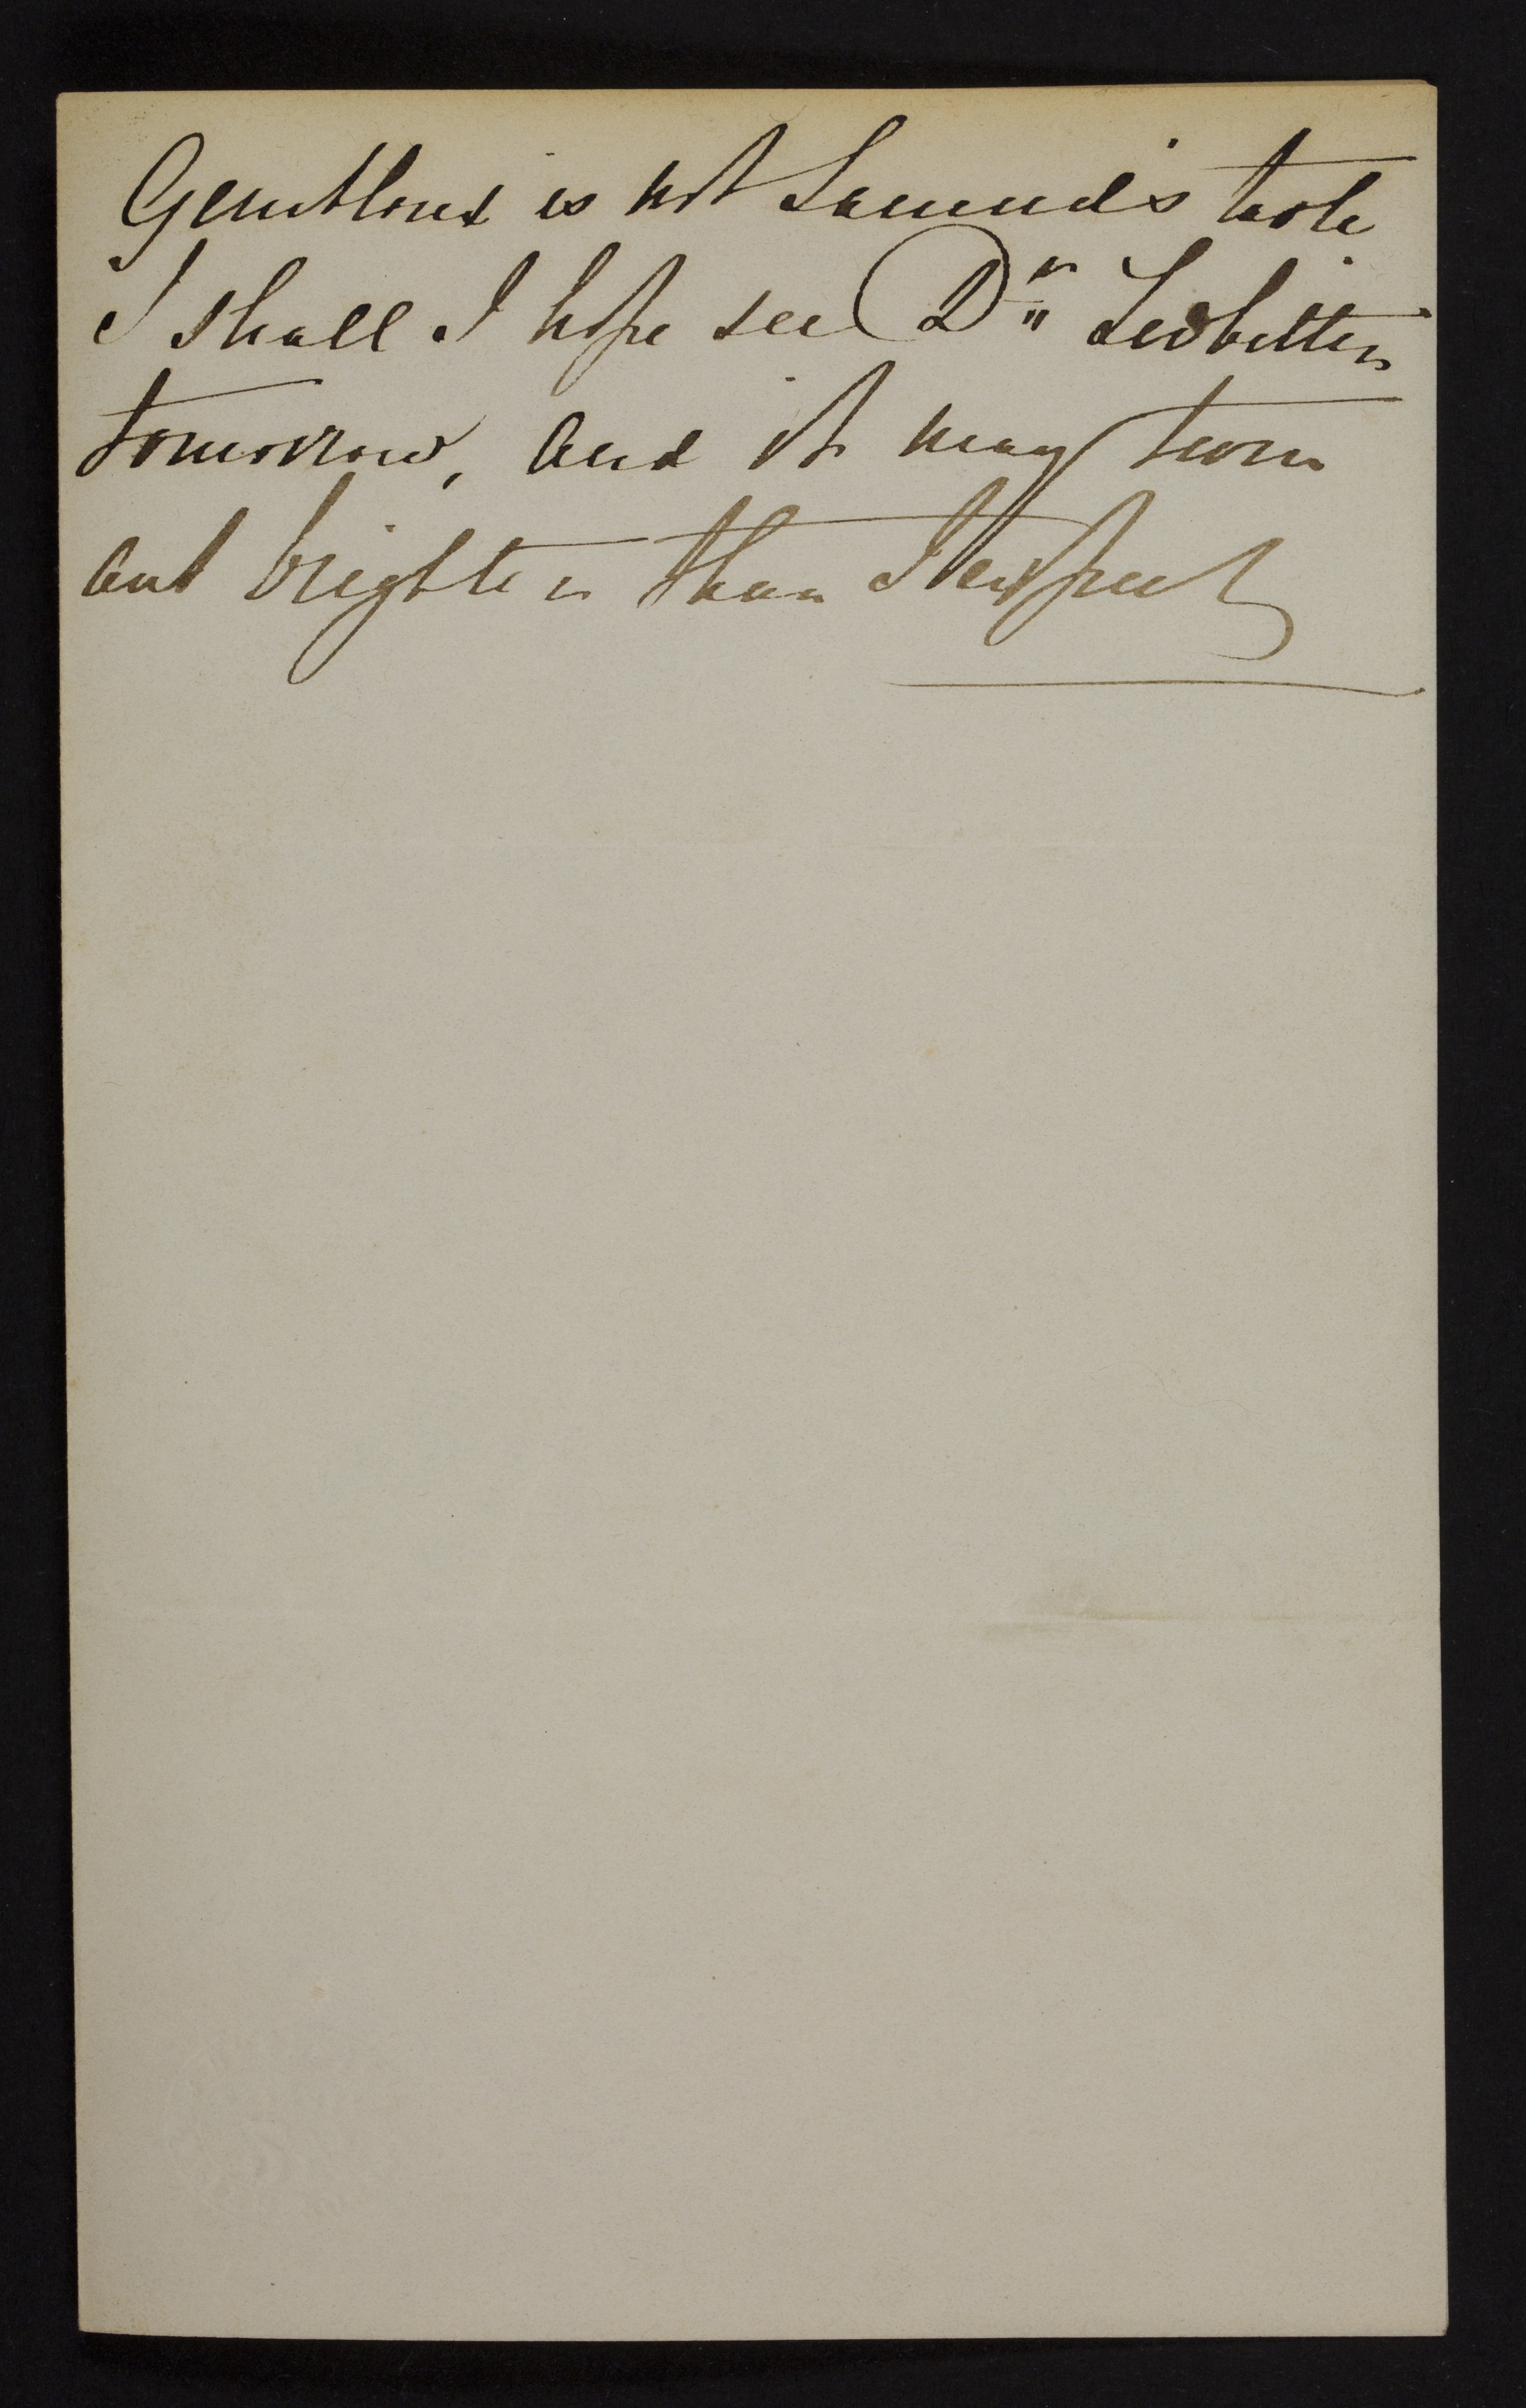 is not Samuel's taste
I shall I hope see Dr Ledbitter
tomorrow, and it may turn
out brighter than I expect